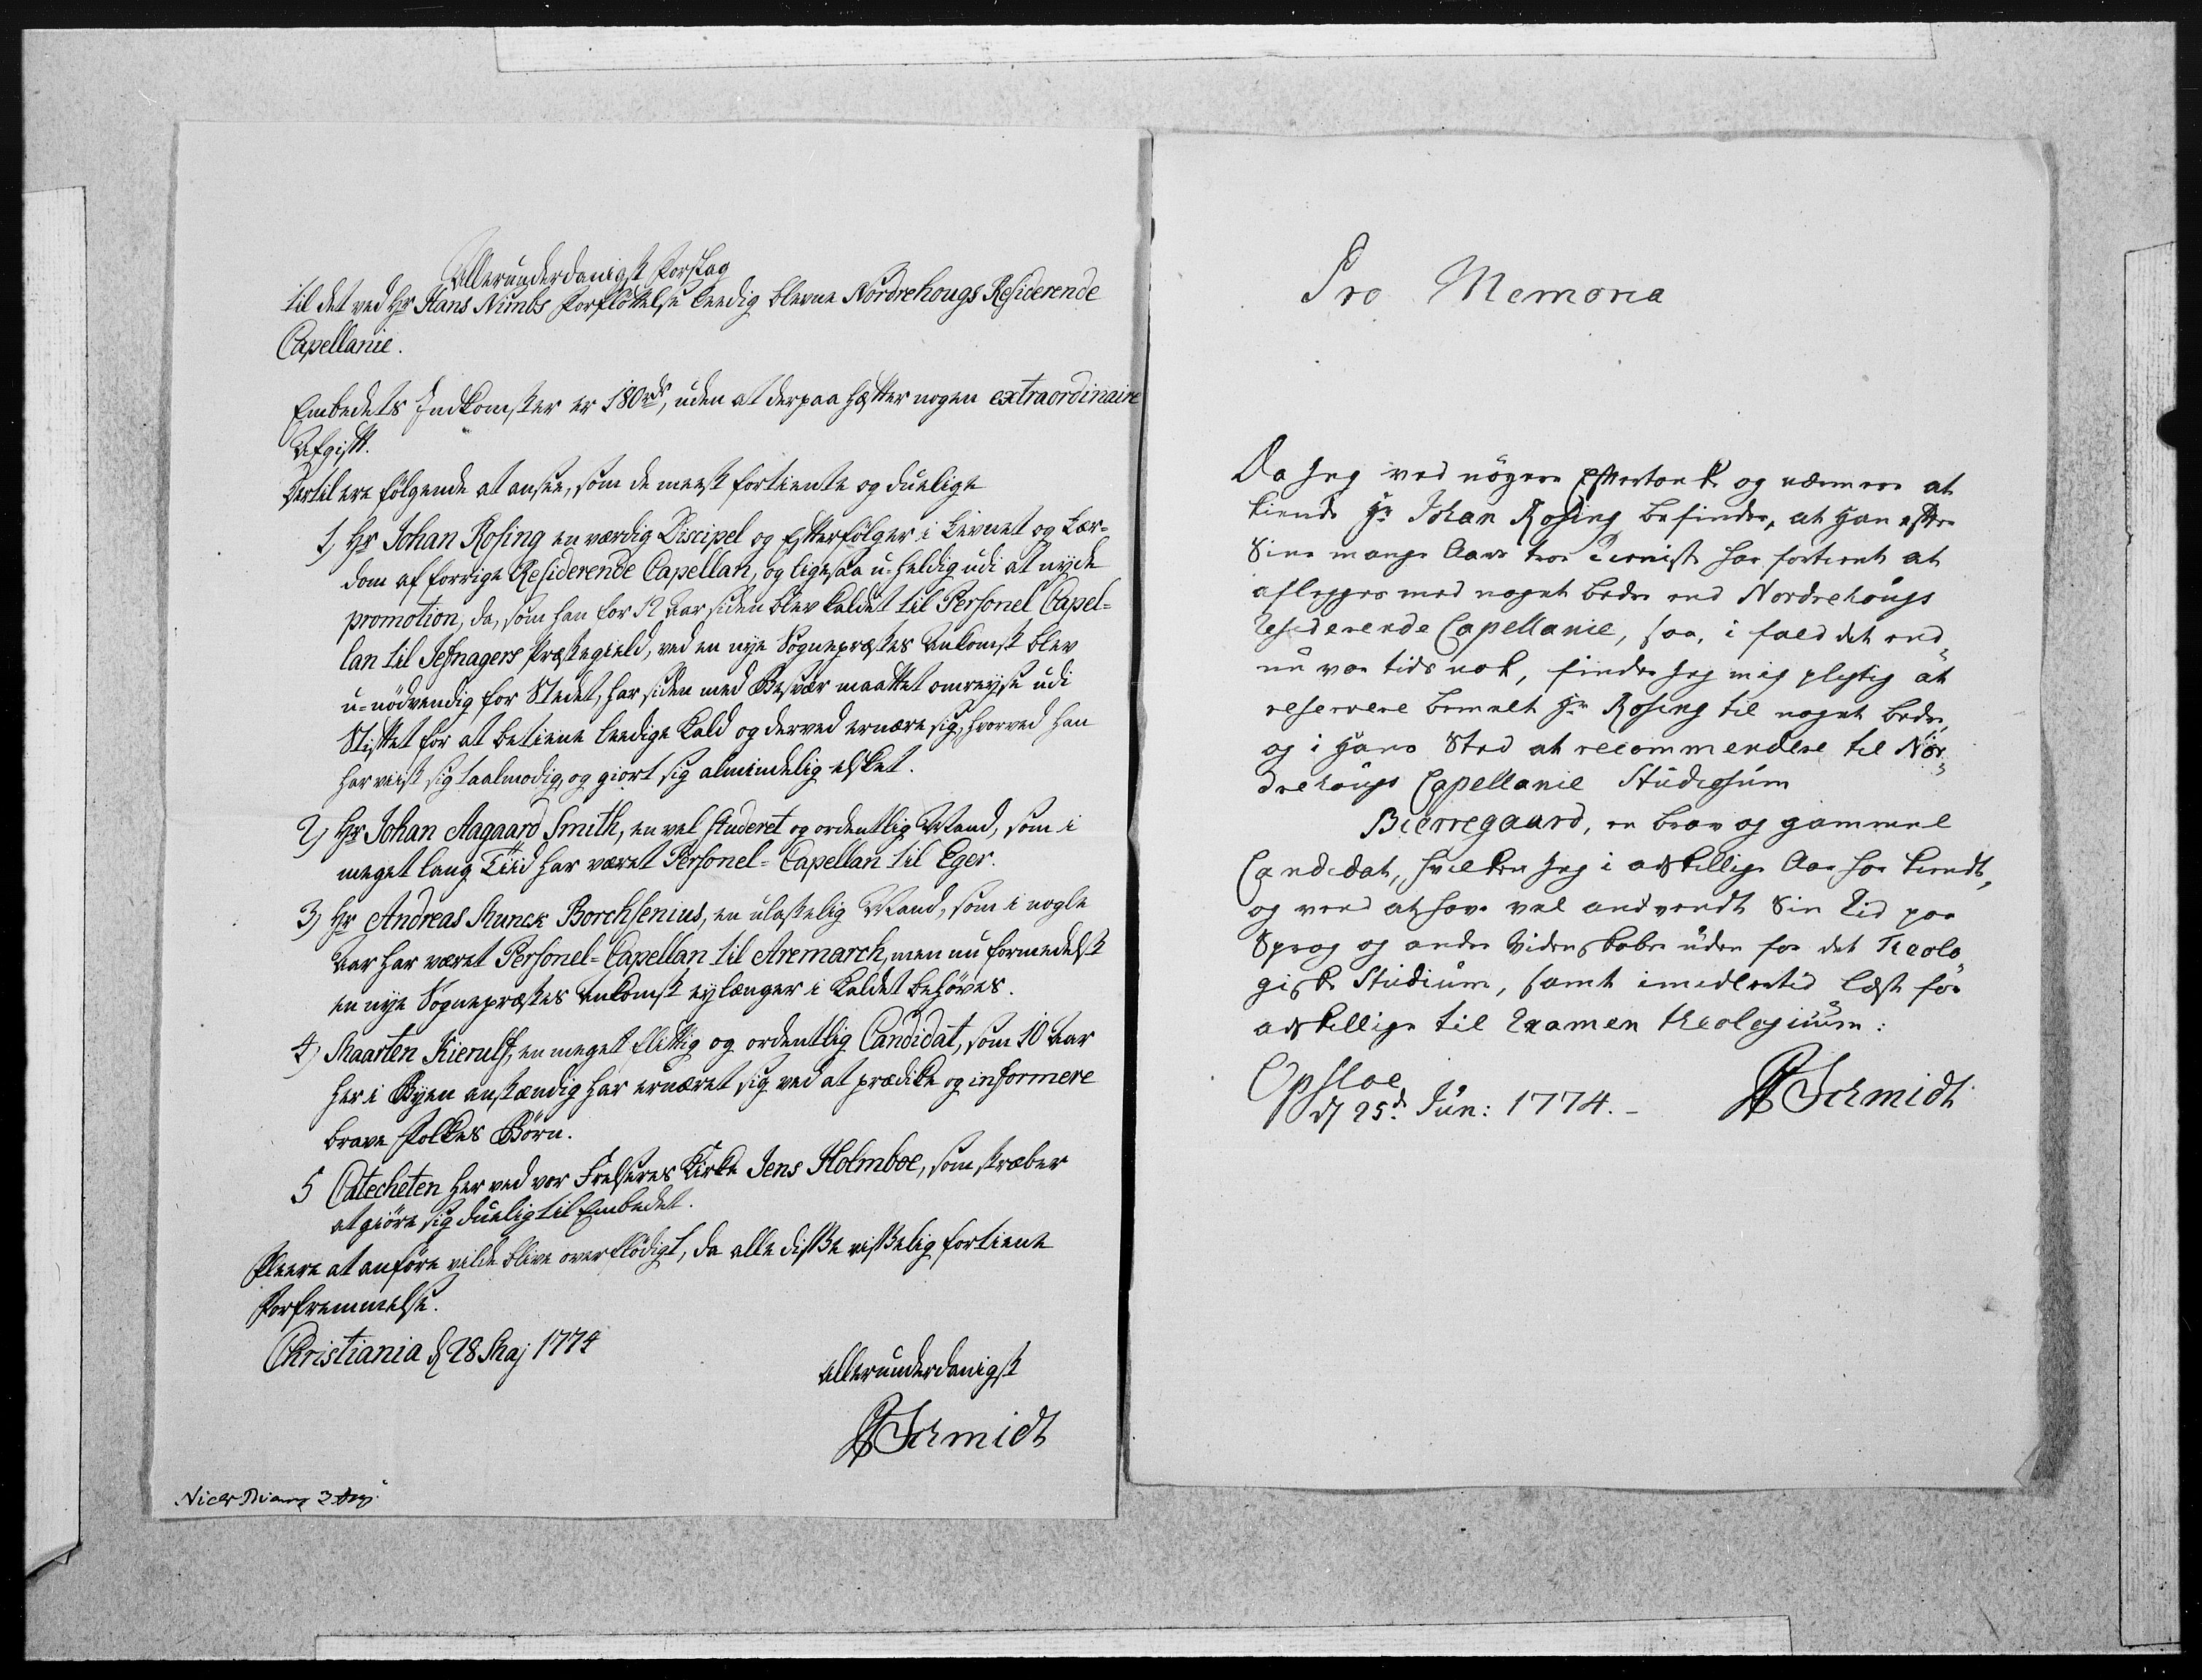 Allerunderdanigst Forslag
til det ved Hr Hans Nimbs Forflöttelse leedig blevne Nordrehougs Residerende
Capellanie.
Embedets Indkomster er 180 rd, uden at derpaa hefter nogen extraordinaire
Afgift.
Dertil ere følgende at ansee, som de meest fortiente og duelige
1, Hr Johan Rosing en værdig Discipel og Efterfölger i Levnet og Lær-
dom af forrige Residerende Capellan, og ligesaa u-heldig udi at nyde
promotion, da, som han for 12 Aar siden blev kaldet til Personel Capel-
lan til Jefnagers Præstegield, ved en nye Sognepræstes Ankomst blev
u-nödvendig for Stedet, har siden med Besvær maattet omreyse udi
Stiftet for at betiene leedige Kald og derved ernære sig, hvorved han
har viist sig taalmodig, og giort sig almindelig elsket.
2, Hr Johan Aagaard Smith, en vel studeret og ordentlig Mand, som i
meget lang Tiid har været Personel-Capellan til Eger.
3, Hr Andreas Munck Borchsenius, en ulastelig Mand, som i nogle
Aar har været Personel-Capellan til Aremarch, men nu formedelst
en nye Sognepræstes Ankomst ey længer i Kaldet behöves.
4, Maarten Kierulf, en meget flittig og ordentlig Candidat, som 10 Aar
her i Byen anstændig har ernæret sig ved at prædike og informere
brave Folkes Börn.
5 Catecheten her ved vor Frelseres Kirke Jens Holmboe, som stræber
at giöre sig duelig til Embedet.
Fleere at anföre vilde blive overflödigt, da alle disse visselig fortiene
Forfremmelse.
Christiania d 28 Maj 1774
allerunderdanigst
FSchmidt
Pro Memoria
Da jeg ved nöyere Eftertanke og nærmere at
kiende Hr Johan Rosing befinder, at Han efter
Sine mange Aars troe Tieniste har fortient at
aflegges med noget bedre end Nordrehougs
Residerende Capellanie, saa, i fald det end-
nu var tids nok, finder Jeg mig pligtig at
reservere bemelte Hr Rosing til noget bedre,
og i Hans Sted at recommendere til Nor-
drehougs Capellanie Studiosum
Bierregaard, en brav og gammel
Candidat, hvilken jeg i adskillige Aar har kiendt,
og veed at have vel anvendt Sin Tid paa
Sprog og andre Videnskaber uden for det Theolo-
giske Studium, samt imedlertid læst for
adskillige til Examen theologicum:
Opsloe
d 25d Jun: 1774.-
FSchmidt